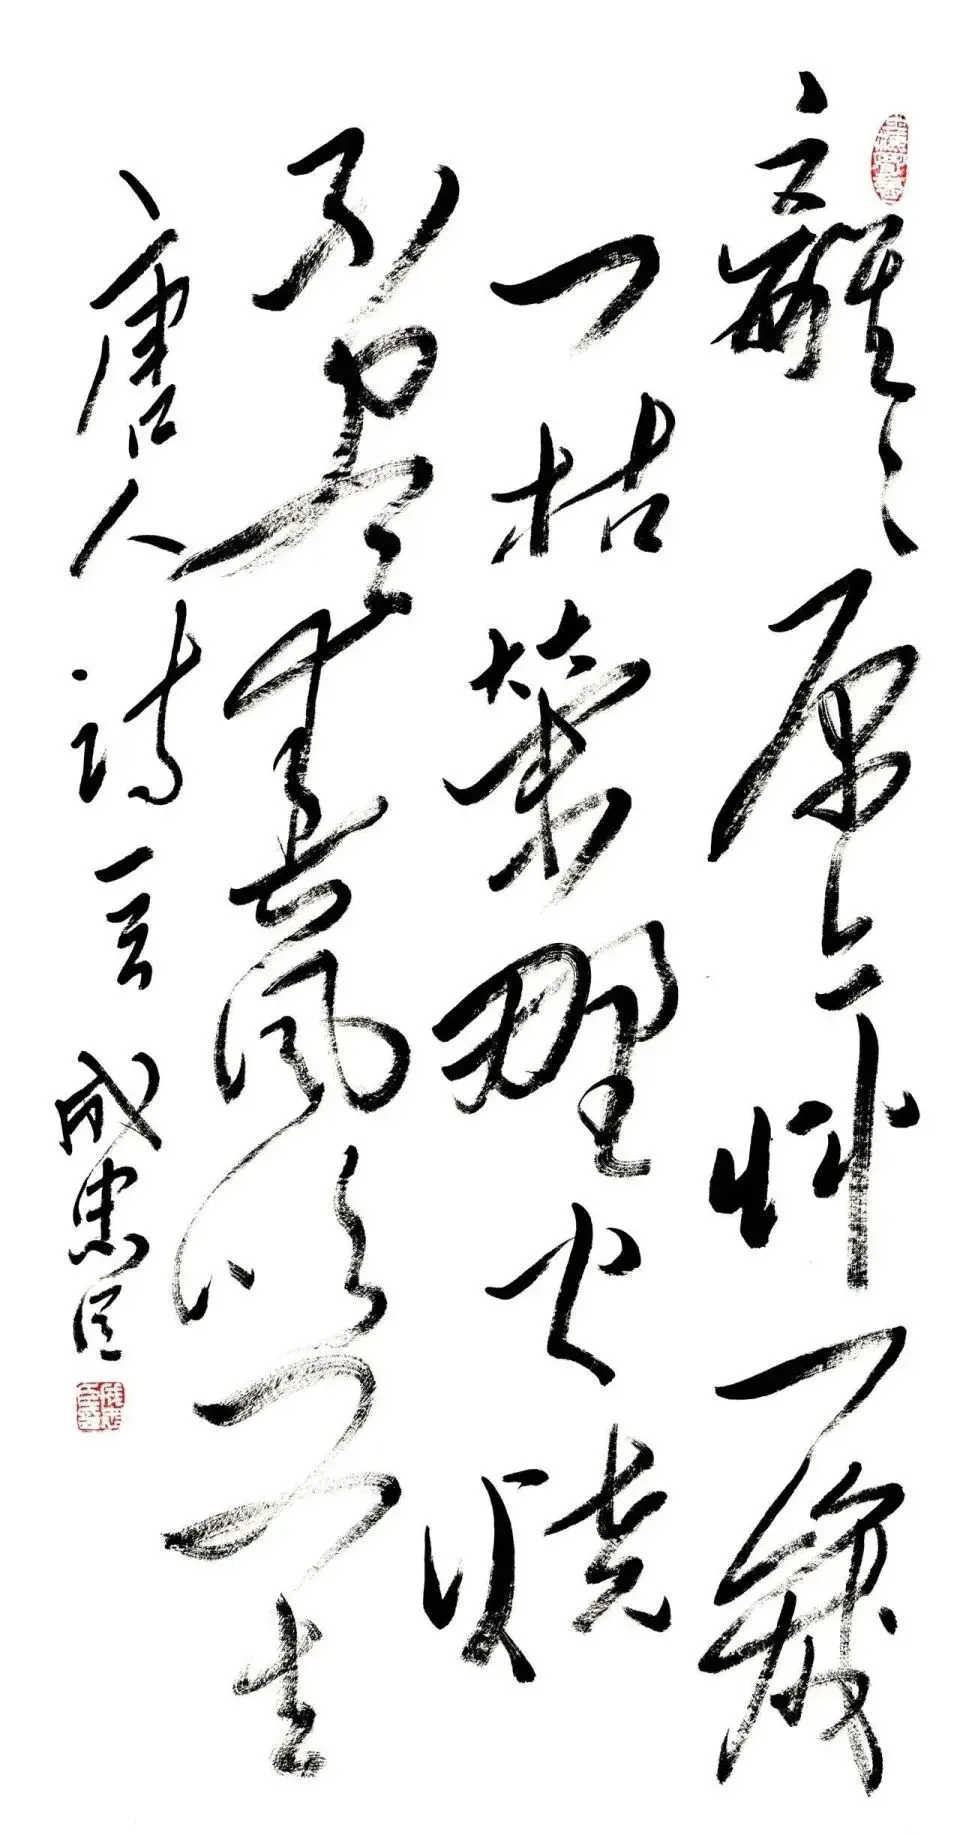 離々原上草一歲
一枯榮野火燒
不盡春風吹又生
唐人詩一首 成忠臣